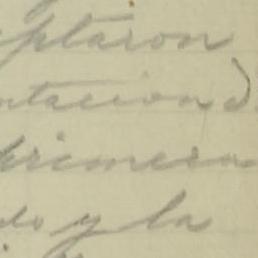 ptaron
ntacion d
primera
do y la